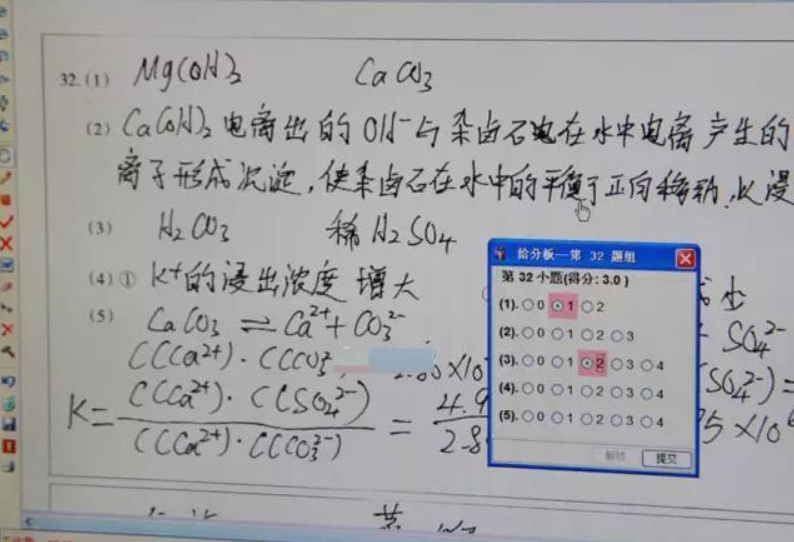 32.(1) Mg(OH)₂ CaCO₃
(2) Ca(OH)₂电离出的OH⁻与杂卤石电在水中电离产生的
离子形成沉淀,使杂卤石在水中的平衡了正向移动,以浸
(3) H₂CO₃ 稀H₂SO₄
(4)① K⁺的浸出浓度 增大
(5) CaCO₃ ⇌ Ca²⁺ + CO₃²⁻
SO₄²⁻
C(Ca²⁺)·C(CO₃²
K= C(Ca²⁺)·C(SO₄²⁻) / C(Ca²⁺)·C(CO₃²⁻) = 4.9 / 2.8
(SO₄²⁻)=
5×10
给分板—第 32 题组
第 32 小题(得分: 3.0 )
(1). 0 1 2
(2). 0 1 2 3
(3). 0 1 2 3 4
(4). 0 1 2 3 4
(5). 0 1 2 3 4
提交